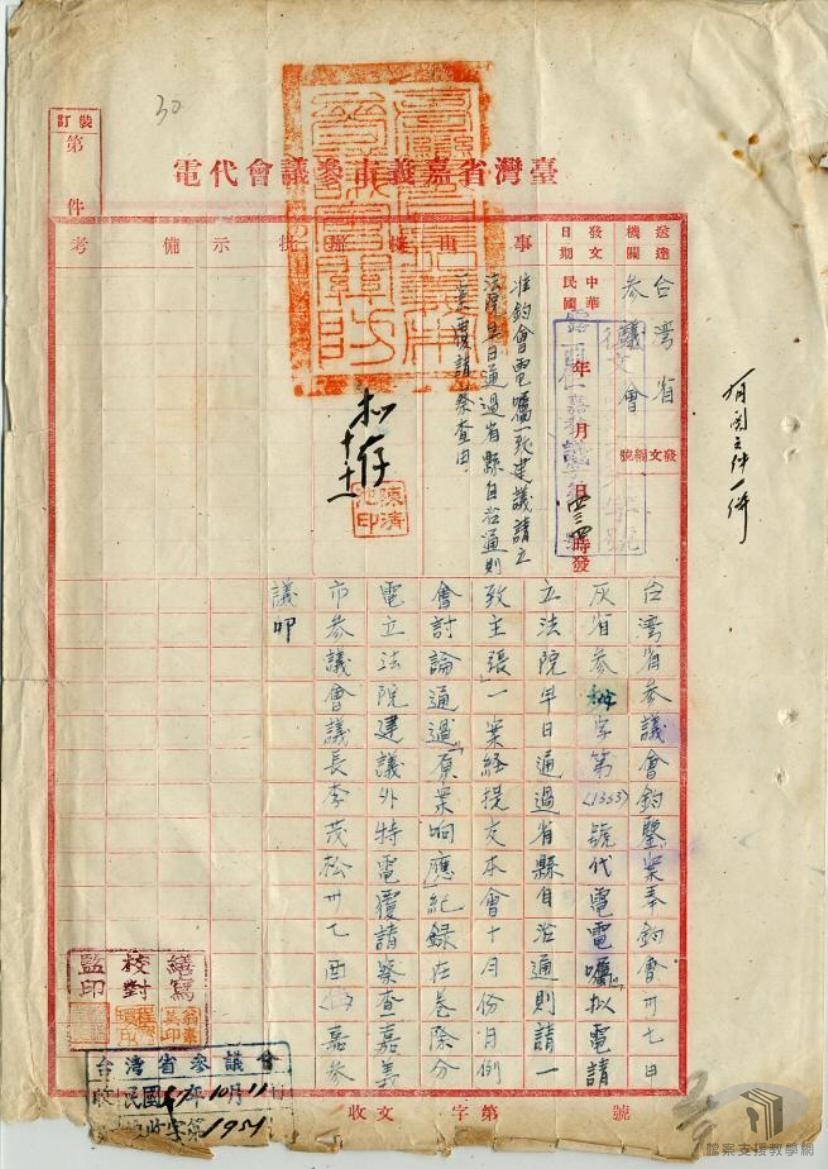 30
裝訂
第
件
臺灣省嘉義市參議會代電
送達機關
台灣省
參議會
發文日期
中華民國
年
月
日
時發
發文編號
事由
准鈞會電囑一致建議請立
法院早日通過省縣自治通則
電覆請察查由
擬辦
批示
備考
擬存
十十一
陳清池印
有關文件一併
台灣省參議會鈞鑒案奉鈞會卅七申
灰省參秘字第(1353)號代電電囑「擬電請
立法院早日通過省縣自治通則請一
致主張」一案経提交本會十月份月例
會討論通過「原案响應」紀録在卷除分
電立法院建議外特電覆請察查嘉義
市參議會議長李茂松卅七酉嘉參
議叩
繕寫
校對
監印
台灣省參議會
收
民國37年10月11日
收字第1954
收文
字第
號
檔案支援教學網